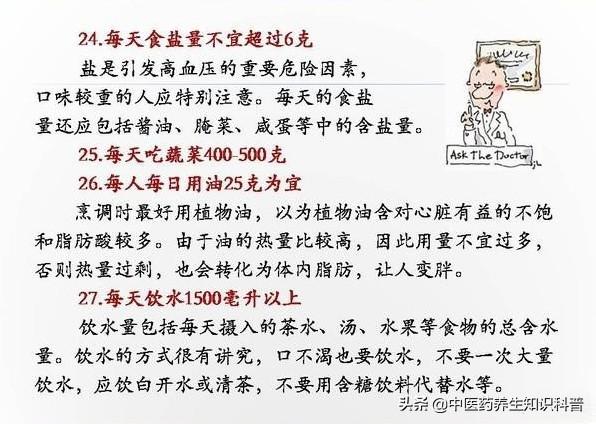 24.每天食盐量不宜超过6克
盐是引发高血压的重要危险因素，
口味较重的人应特别注意。每天的食盐
量还应包括酱油、腌菜、咸蛋等中的含盐量。
Ask The Doctor
25.每天吃蔬菜400-500克
26.每人每日用油25克为宜
烹调时最好用植物油，以为植物油含对心脏有益的不饱
和脂肪酸较多。由于油的热量比较高，因此用量不宜过多，
否则热量过剩，也会转化为体内脂肪，让人变胖。
27.每天饮水1500毫升以上
饮水量包括每天摄入的茶水、汤、水果等食物的总含水
量。饮水的方式很有讲究，口不渴也要饮水，不要一次大量
饮水，应饮白开水或清茶，不要用含糖饮料代替水等。
头条 @中医药养生知识科普